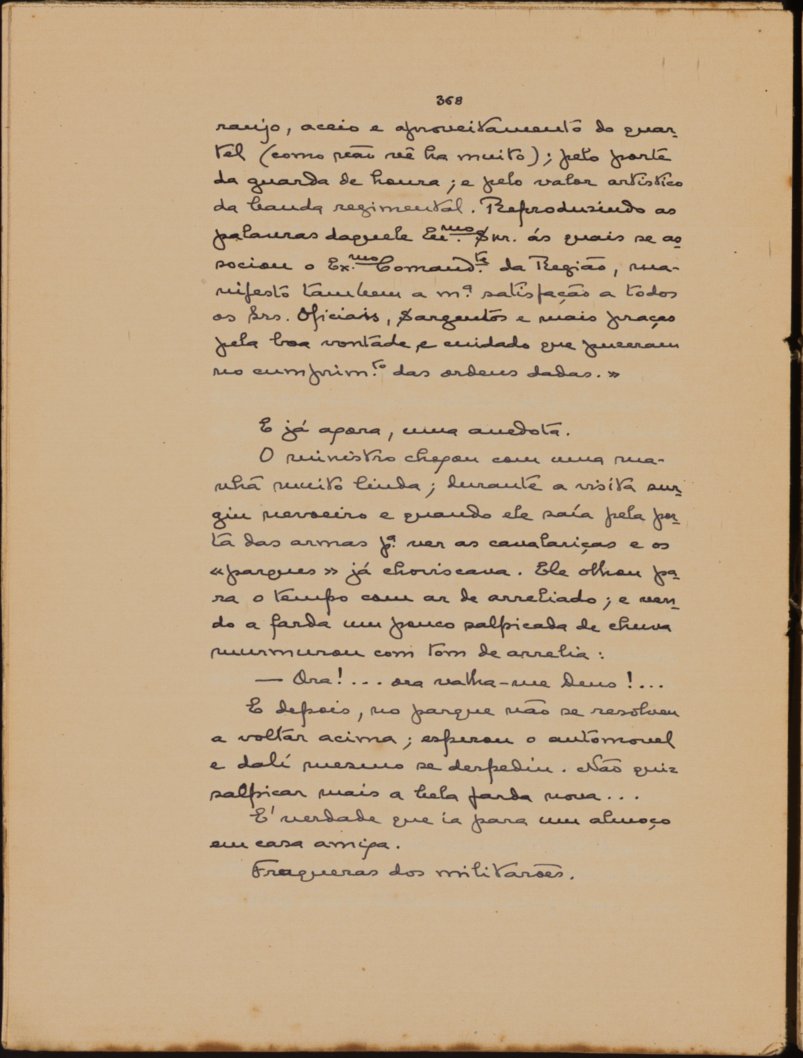 368
ranjo, aceio e aproveitamento do quar-
tel (como não vê ha muito); pelo porte
da guarda de honra; e pelo valor artistico
da banda regimental. Reproduzindo as
palavras daquele Ex.mo Snr. ás quais se as-
sociou o Ex.mo Comand.te da Região, ma-
nifesto tambem a m.ª satisfação a todos
os Srs. Oficiais, Sargentos e mais praças
pela boa vontade e cuidado que puzeram
no cumprim.to das ordens dadas.»
E já agora, uma anedota.
O ministro chegou com uma ma-
nhã muito linda; durante a visita sur-
giu nevoeiro e quando ele saía pela por-
ta das armas p.ª ver as cavalariças e os
«parques» já choviscava. Ele olhou pa-
ra o tempo com ar de arreliado; e ven-
do a farda um pouco salpicada de chuva
murmurou com tom de arrelia:
— Ora!... ora valha-me Deus!...
E depois, no parque não se resolveu
a voltar acima; esperou o automovel
e dalí mesmo se despediu. Não quiz
salpicar mais a bela farda nova...
E' verdade que ia para um almoço
em casa amiga.
Fraquezas dos militarões.